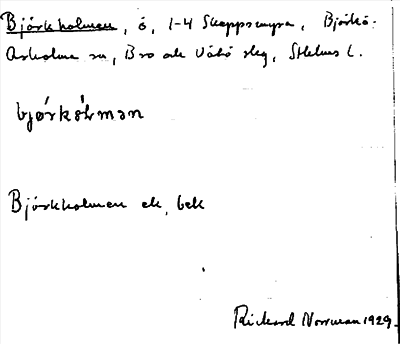 Björkholmen, ö, 1-4 Skeppsmyra, Björkö-
Arholma sn, Bro och Vätö skg, Sthlms l.
bjørkɷ́lman
Björkholmen ek, bek
Rickard Norrman 1929.